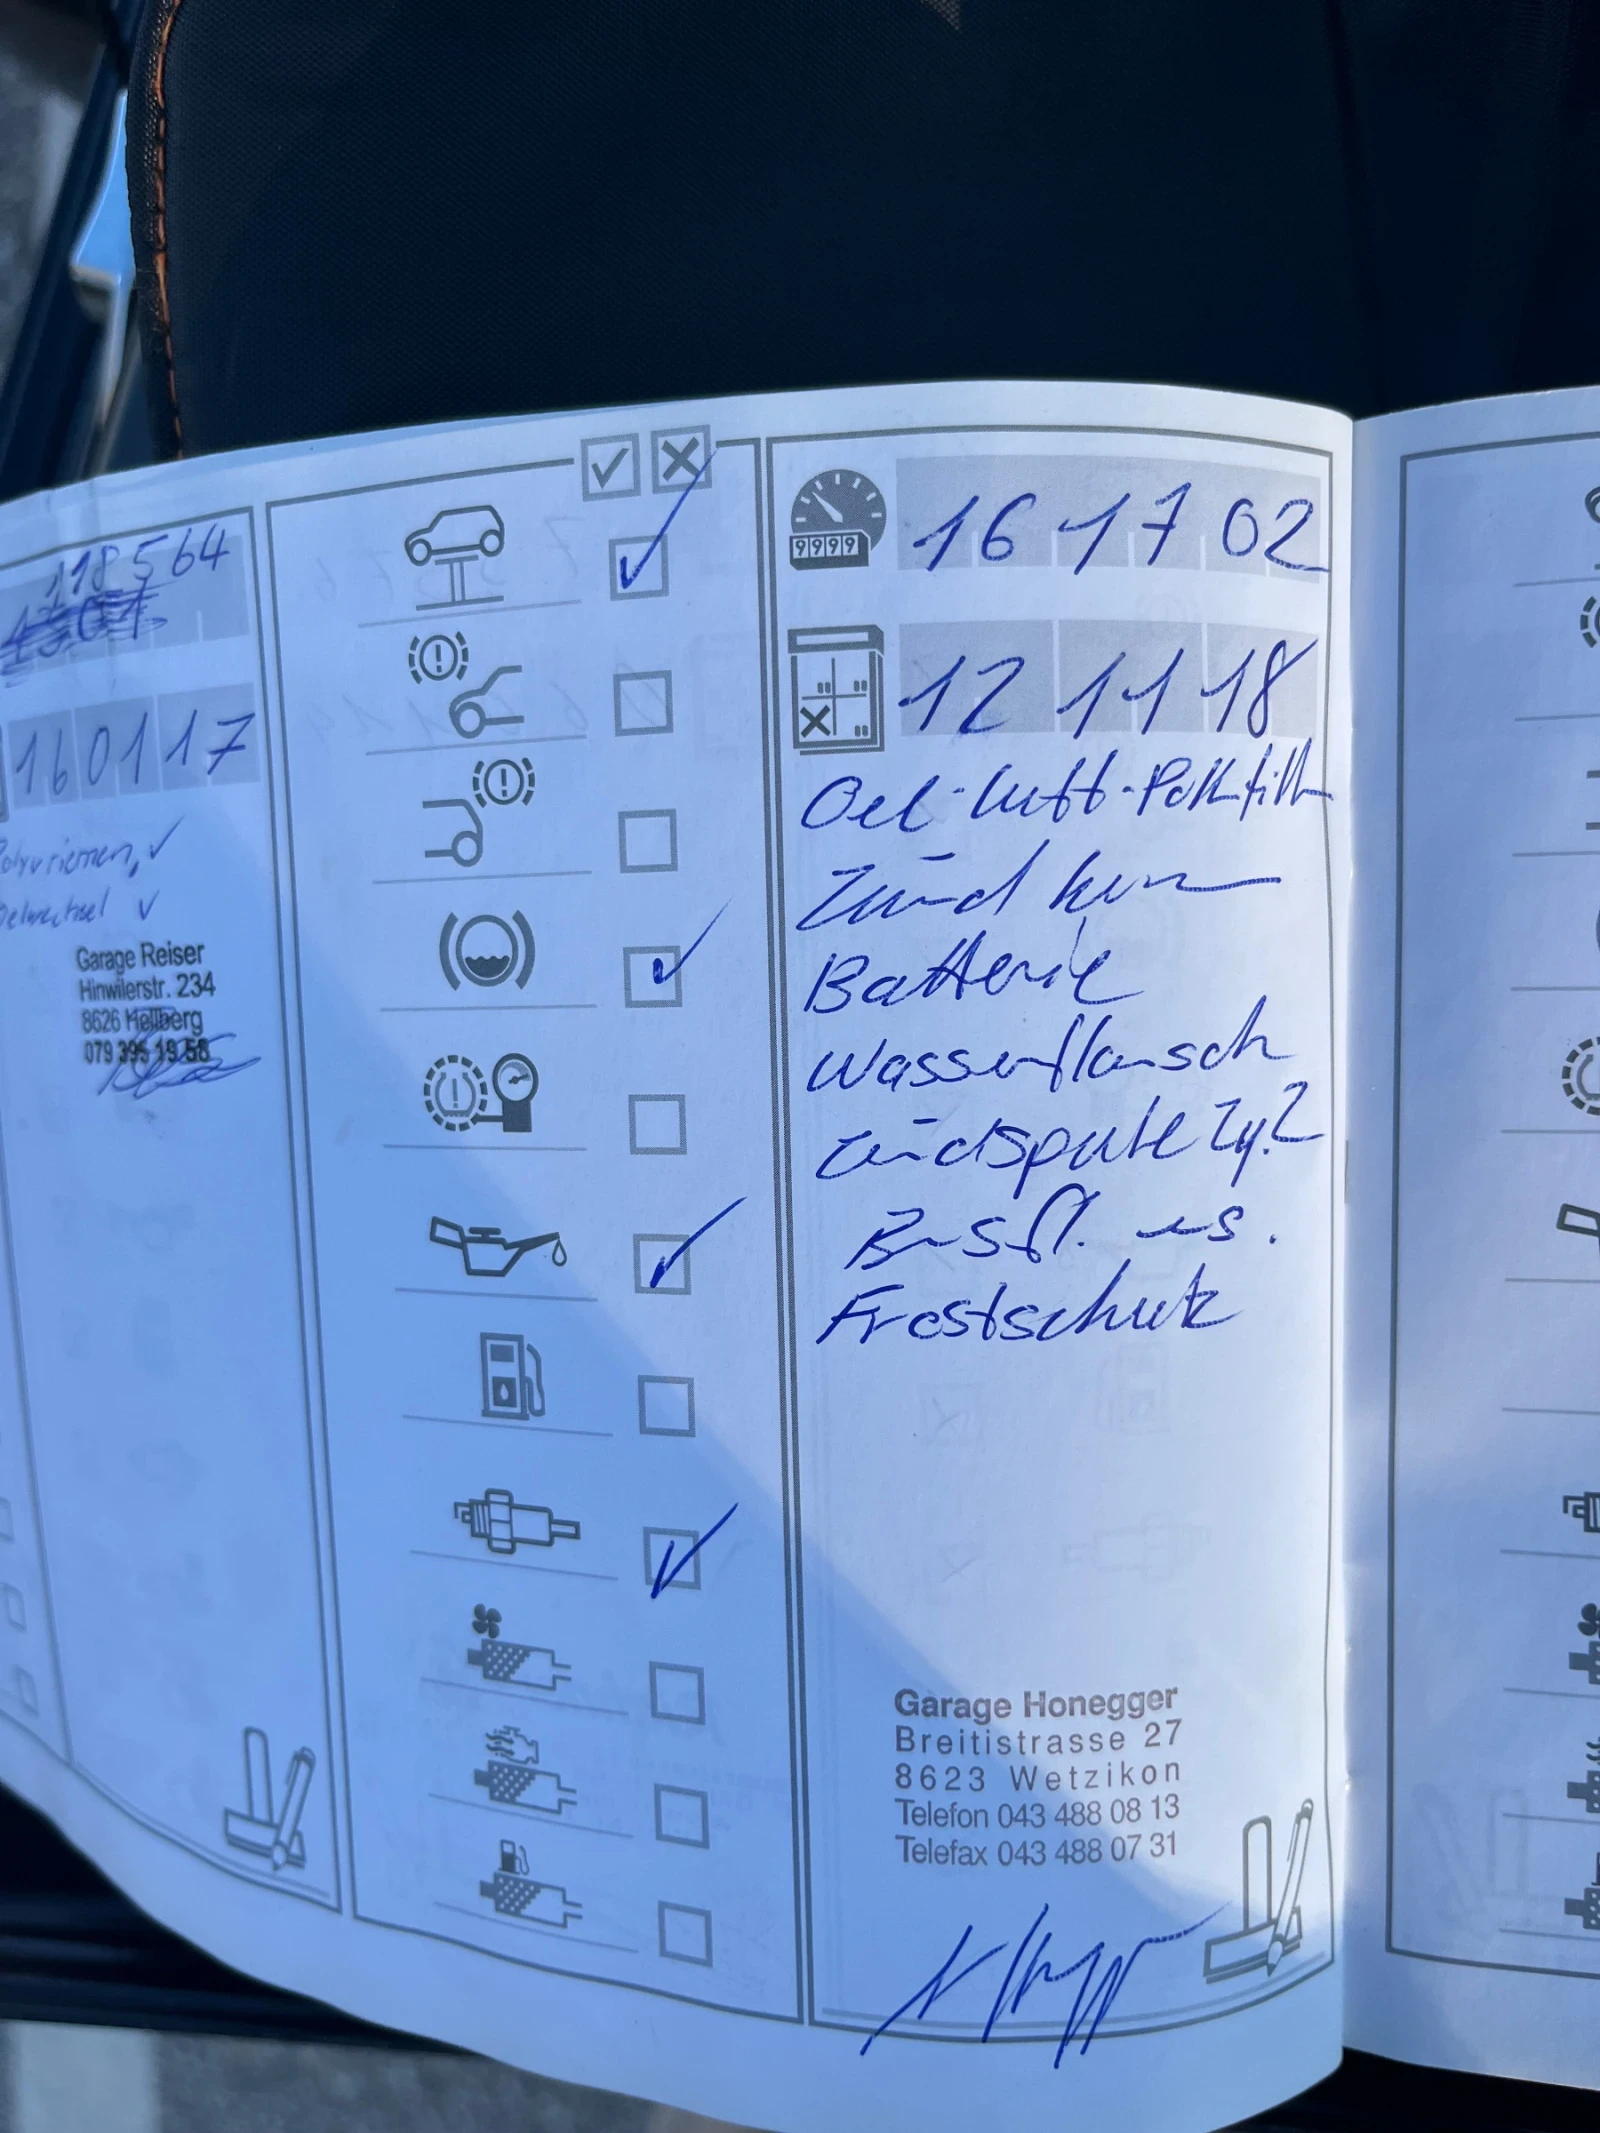 118 564
160117
Polyriemen, ✓
Oelwechsel ✓
Garage Reiser
Hinwilerstr. 234
8626
079 395 19 58
9999
16 17 02
12 11 18
Oel-Luft-Poll filt
Zünd ker
Batterie
Wasserflansch
Zündspule Zy. 2
Brsfl. ws.
Frostschutz
Garage Honegger
Breitistrasse 27
8623 Wetzikon
Telefon 043 488 08 13
Telefax 043 488 07 31